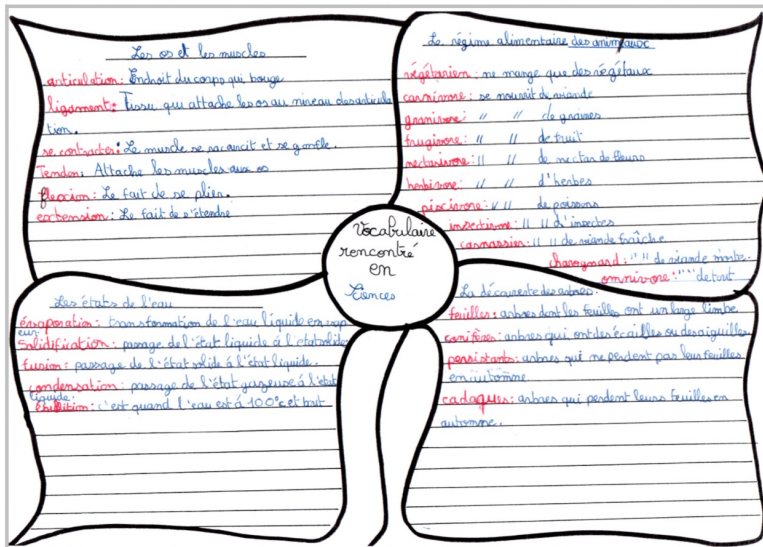 Les os et les muscles
articulation: Endroit du corps qui bouge
ligament: Tissu qui attache les os au niveau des articula
tion.
se contracter: Le muscle se racourcit et se gonfle.
Tendon: Attache les muscles aux os
flexion: Le fait de se plier.
extension: Le fait de s'étendre
Le régime alimentaire des animaux
végétarien: ne mange que des végétaux
carnivore: se nourrit de viande
granivore: " " de graines
frugivore: " " de fruit
nectarivore: " " de nectar de fleurs
herbivore: " " d'herbes
piscivore: " " de poissons
insectivore: " " d'insectes
carnassier: " " de viande fraîche
charognard: " " de viande morte.
omnivore: " " de tout
Vocabulaire
rencontré
en
Les états de l'eau
évaporation: transformation de l'eau liquide en vap
eur.
Solidification: passage de l'état liquide à l'état solide
fusion: passage de l'état solide à l'état liquide.
condensation: passage de l'état gazeuse à l'état
liquide.
ébullition: c'est quand l'eau est à 100°c et bout
La découverte des arbres.
feuilles: arbres dont les feuilles ont un large limbe
conifère: arbres qui ont des écailles ou des aiguilles
persistants: arbres qui ne perdent pas leur feuilles
en automne
caduques: arbres qui perdent leurs feuilles en
automne.